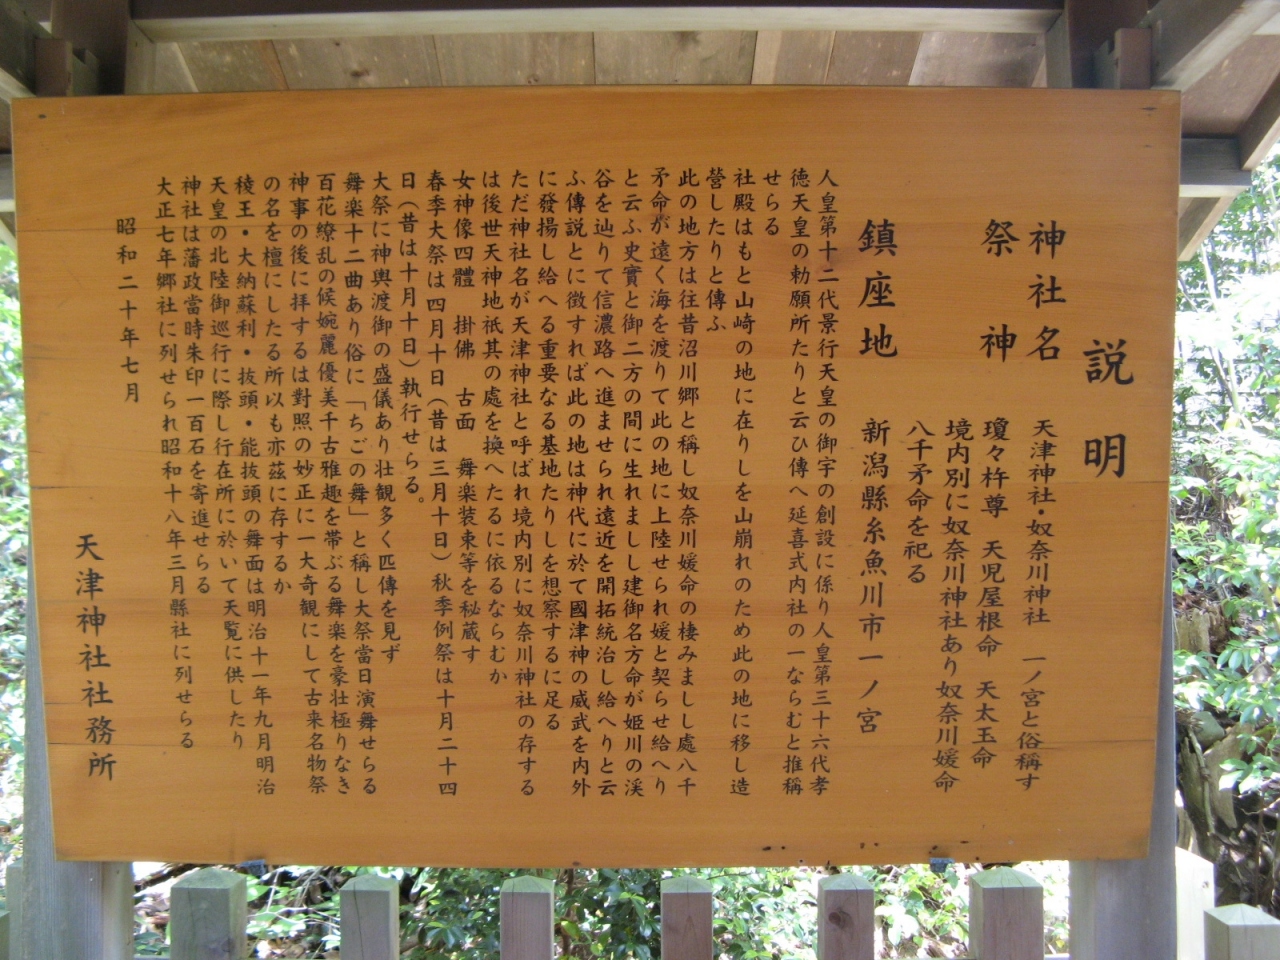 説明
神社名　天津神社・奴奈川神社　一ノ宮と俗稱す
祭神　瓊々杵尊　天児屋根命　天太玉命
境内別に奴奈川神社あり奴奈川媛命
八千矛命を祀る
鎮座地　新潟縣糸魚川市一ノ宮
人皇第十二代景行天皇の御宇の創設に係り人皇第三十六代孝
徳天皇の勅願所たりと云ひ傳へ延喜式内社の一ならむと推稱
せらる
社殿はもと山崎の地に在りしを山崩れのため此の地に移し造
營したりと傳ふ
此の地方は往昔沼川郷と稱し奴奈川媛命の棲みましし處八千
矛命が遠く海を渡りて此の地に上陸せられ媛と契らせ給へり
と云ふ史實と御二方の間に生れましし建御名方命が姫川の渓
谷を辿りて信濃路へ進ませられ遠近を開拓統治し給へりと云
ふ傳説とに徴すれば此の地は神代に於て國津神の威武を内外
に發揚し給へる重要なる基地たりしを想察するに足る
ただ神社名が天津神社と呼ばれ境内別に奴奈川神社の存する
は後世天神地祇其の處を換へたるに依るならむか
女神像四體　掛佛　古面　舞楽装束等を秘蔵す
春季大祭は四月十日（昔は三月十日）秋季例祭は十月二十四
日（昔は十月十日）執行せらる。
大祭に神輿渡御の盛儀あり壮観多く匹傳を見ず
舞楽十二曲あり俗に「ちごの舞」と稱し大祭當日演舞せらる
百花繚乱の候婉麗優美千古雅趣を帯ぶる舞楽を豪壮極りなき
神事の後に拝するは對照の妙正に一大奇観にして古来名物祭
の名を檀にしたる所以も亦茲に存するか
稜王・大納蘇利・抜頭・能抜頭の舞面は明治十一年九月明治
天皇の北陸御巡行に際し行在所に於いて天覧に供したり
神社は藩政當時朱印一百石を寄進せらる
大正七年郷社に列せられ昭和十八年三月縣社に列せらる
昭和二十年七月
天津神社社務所